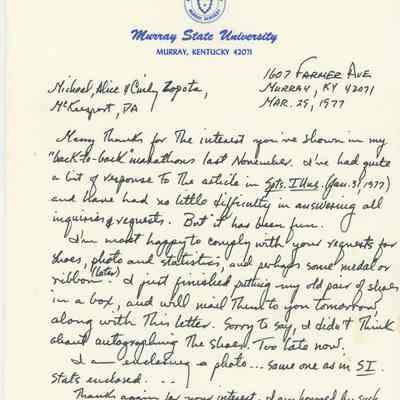 Murray State University
MURRAY, KENTUCKY 42071
1607 FARMER AVE
MURRAY, KY 42071
MAR. 29, 1977
Michael, Alice & Cindy Zopota,
McKeesport, PA
Many thanks for the interest you've shown in my
"back-to-back" marathons last November. I've had quite
a bit of response to the article in Spts. Illus. (Jan. 31, 1977)
and have had no little difficulty in answering all
inquiries & requests. But it has been fun.
I'm most happy to comply with your requests for
shoes, photo and statistics, and perhaps some medal or
ribbon (later). I just finished putting my old pair of shoes
in a box, and will mail them to you tomorrow,
along with this letter. Sorry to say, I didn't think
about autographing the shoes. Too late now.
I am enclosing a photo... same one as in SI.
Stats enclosed...
Thanks again for your interest. I am honored by such